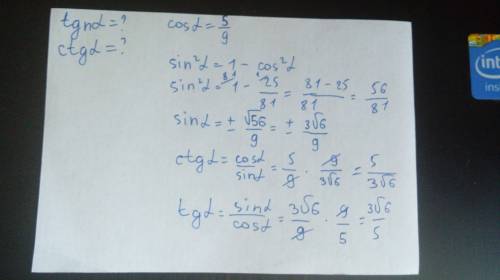 tgnα = ?
ctgα = ?
cosα = 5/9
sin²α = 1 - cos²α
sin²α = 1 - 25/81 = (81 - 25)/81 = 56/81
sinα = ± √56/9 = ± 3√6/9
ctgα = cosα/sinα = 5/9 · 9/3√6 = 5/3√6
tgα = sinα/cosα = 3√6/9 · 9/5 = 3√6/5
inte